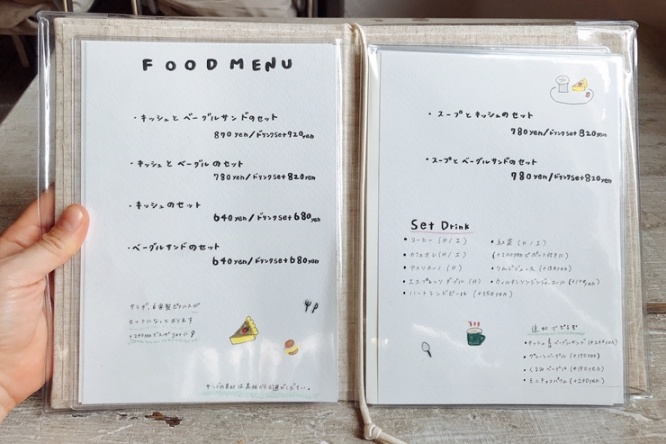 FOOD MENU
・キッシュとベーグルサンドのセット
870yen/ドリンクset920yen
・キッシュとベーグルのセット
780yen/ドリンクset820yen
・キッシュのセット
640yen/ドリンクset680yen
・ベーグルサンドのセット
640yen/ドリンクset680yen
サラダ、自家製ピクルスが
セットになっております
・スープとキッシュのセット
780yen/ドリンクset820yen
・スープとベーグルサンドのセット
780yen/ドリンクset820yen
Set Drink
・コーヒー(H/I)
・カフェオレ(H/I)
・エスプレッソダブル(H)
・ハートランドビール
・紅茶(H/I)
・りんごジュース
追加できます
・プレーンベーグル
・くるみベーグル